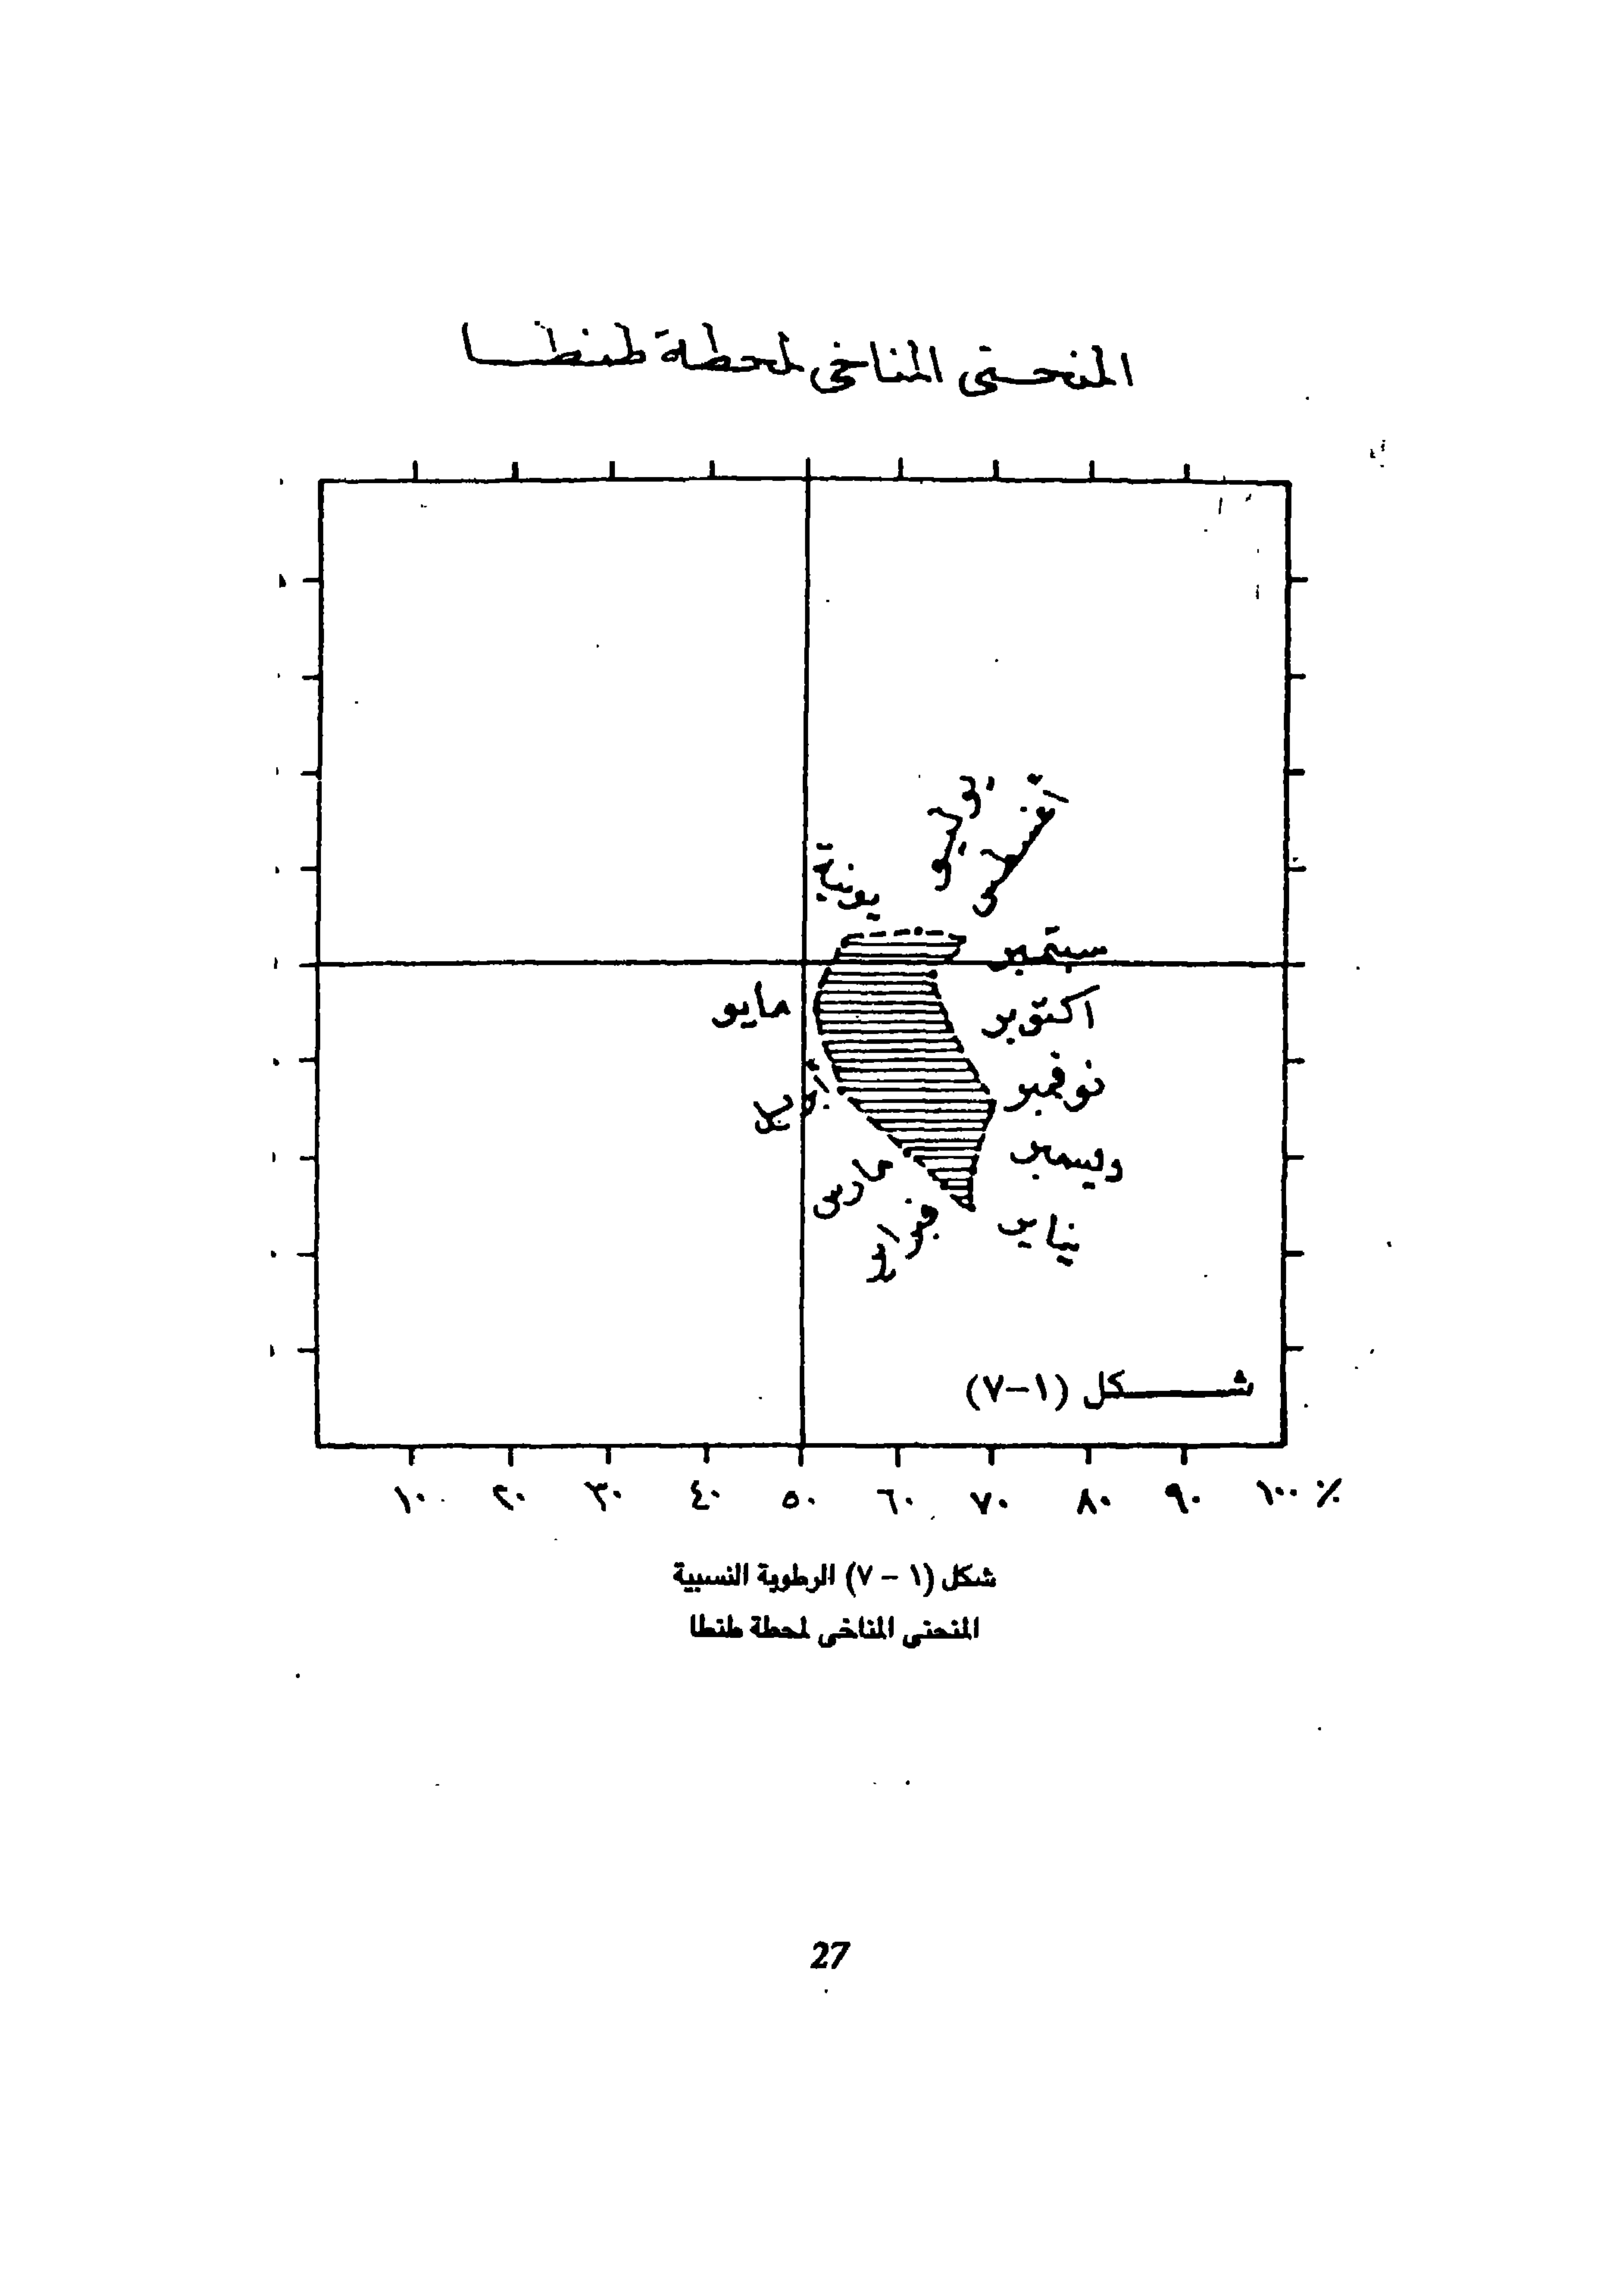 المنحنى المناخى لمحطة طنطا
يوليو
أغسطس
يونية
سبتمبر
مايو
اكتوبر
أبريل
نوفمبر
مارس
ديسمبر
فبراير
يناير
شكل (١-٧)
١٠ ٢٠ ٣٠ ٤٠ ٥٠ ٦٠ ٧٠ ٨٠ ٩٠ ١٠٠ %
شكل (١ - ٧) الرطوبة النسبية
المنحنى المناخى لمحطة طنطا
27